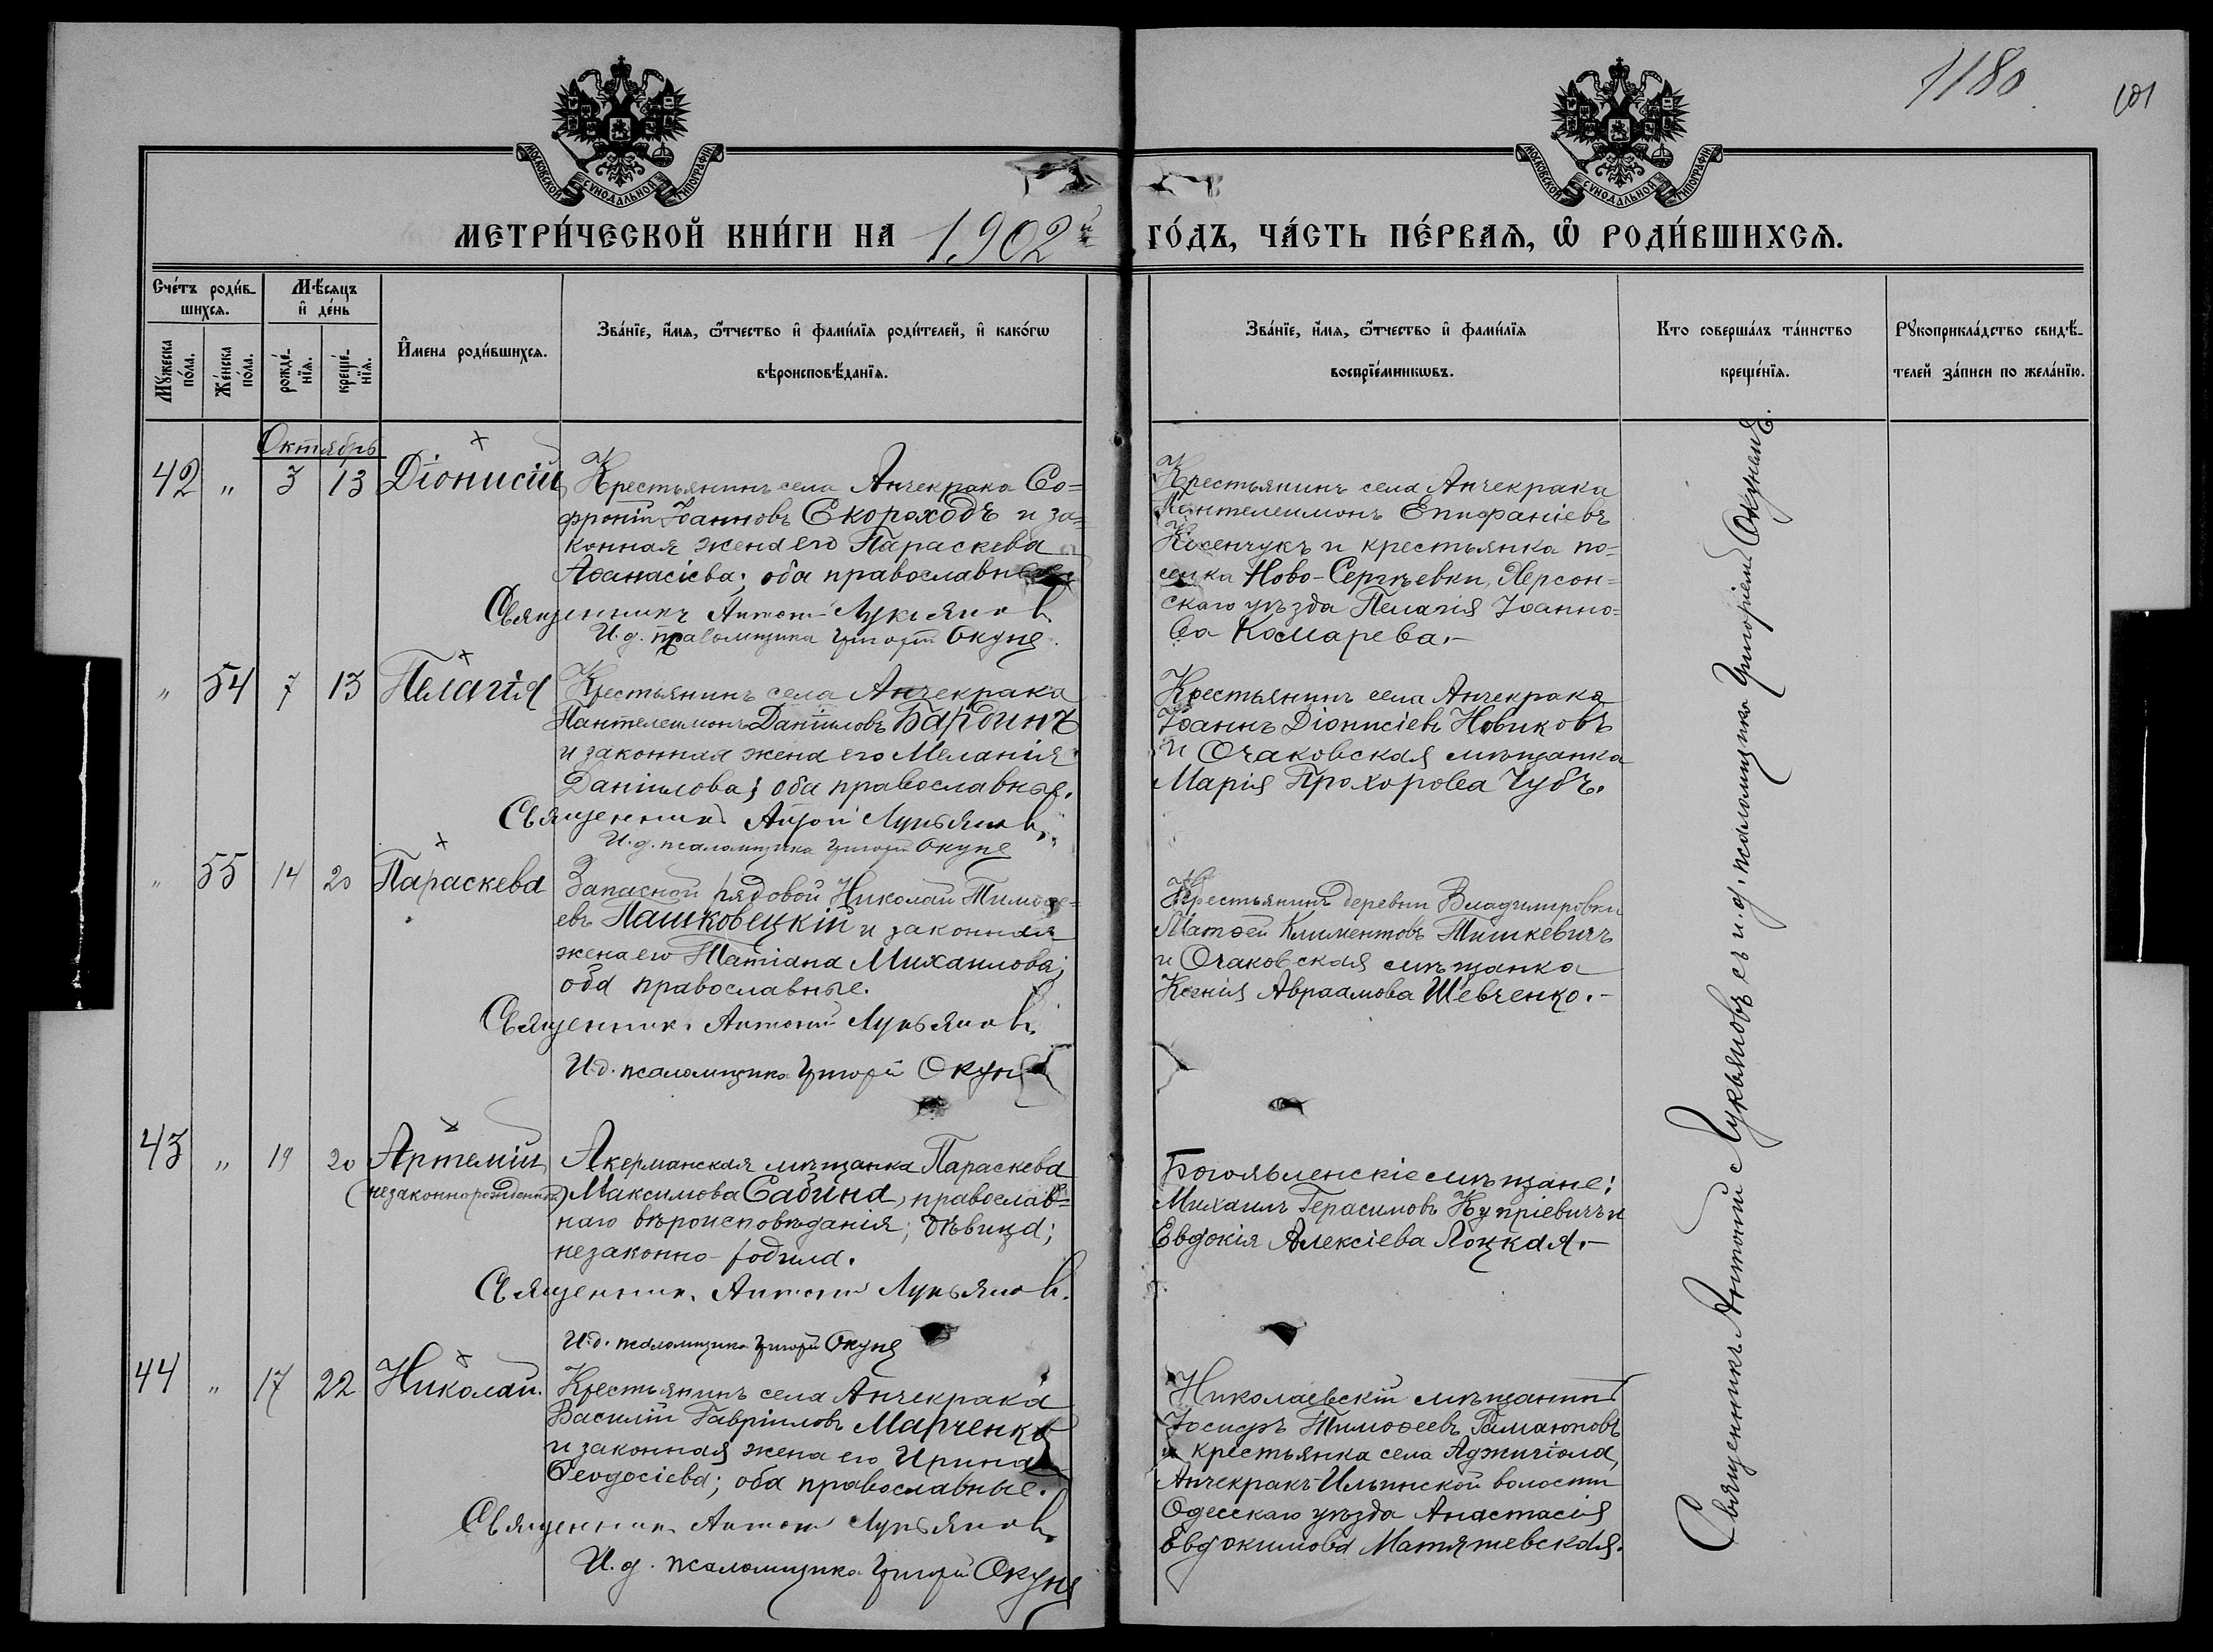 1180
101
МОСКОВСКОЙ СѴНОДАЛЬНОЙ ТИПОГРАФІИ
МОСКОВСКОЙ СѴНОДАЛЬНОЙ ТИПОГРАФІИ
МЕТРИ́ЧЕСКОЙ КНИ́ГИ НА 1902й ГО́ДЪ, ЧА́СТЬ ПЕ́РВАѦ, Ѽ РОДИ́ВШИХСѦ.
Сче́тъ роди́в-
шихсѧ.
Мꙋ́жеска
по́ла.
Же́нска
по́ла.
Мѣ́сѧцъ
и҆ де́нь
рожде́-
нїѧ.
креще́-
нїѧ.
И҆мена роди́вшихсѧ.
Зва́нїе, и҆́мѧ, ѻ҆́тчество и҆ фами́лїѧ роди́телей, и҆ како́гѡ
вѣроисповѣ́данїѧ.
Зва́нїе, и҆́мѧ, ѻ҆́тчество и҆ фами́лїѧ
воспрїе́мникѡвъ.
Кто соверша́лъ та́инство
креще́нїѧ.
Рꙋкоприкла́дство свидѣ́-
телей за́писи по жела́нїю.
Октябрь
42 „ 3 13 Діонисій
Крестьянинъ села Анчекрака Со=
фроній Іоанновъ Скороходъ и за=
конная жена его Параскева
Аѳанасіева; оба православные.
Священникъ Антоній Лукьяновъ
И. д. псаломщика Григорій Окунь
Крестьянинъ села Анчекрака
Пантелеимонъ Епифаніевъ
Косенчукъ и крестьянка по=
селка Ново-Сергѣевки, Херсон=
скаго уѣзда Пелагія Іоанно=
ва Комарева.-
„ 54 7 13 Пелагія
Крестьянинъ села Анчекрака
Пантелеимонъ Даніиловъ Бардинъ
и законная жена его Меланія
Даніилова; оба православные.
Священникъ Антоній Лукьяновъ
И. д. псаломщика Григорій Окунь
Крестьянинъ села Анчекрака
Іоаннъ Діонисіевъ Новиковъ
и Очаковская мѣщанка
Марія Прохорова Чубъ.
„ 55 14 20 Параскева
Запасной рядовой Николай Тимоѳе=
евъ Пашковецкій и законная
жена его Татіана Михаилова;
оба православные.
Священникъ Антоній Лукьяновъ
И. д. псаломщика Григорій Окунь
Крестьянинъ деревни Владимировки
Матѳей Климентовъ Тишкевичъ
и Очаковская мѣщанка
Ксенія Авраамова Шевченко.-
43 „ 19 20 Артемій
(незаконнорожденный)
Акерманская мѣщанка Параскева
Максимова Сабина, православ=
наго вѣроисповѣданія; дѣвица;
незаконно-родила.
Священникъ Антоній Лукьяновъ
И. д. псаломщика Григорій Окунь
Богоявленскіе мѣщане:
Михаилъ Герасимовъ Купріевичъ и
Евдокія Алексіева Лоцкая.-
44 „ 17 22 Николай.
Крестьянинъ села Анчекрака
Василій Гавріиловъ Марченко
и законная жена его Ирина
Ѳеодосіева; оба православные.
Священникъ Антоній Лукьяновъ
И. д. псаломщика Григорій Окунь
Николаевскій мѣщанинъ
Іосифъ Тимоѳеевъ Гамаюновъ
и крестьянка села Аджигіола,
Анчекракъ-Ильинской волости
Одесскаго уѣзда Анастасія
Евдокимова Матяшевская.
Священникъ Антоній Лукьяновъ съ и. д. псаломщика Григоріемъ Окунемъ.